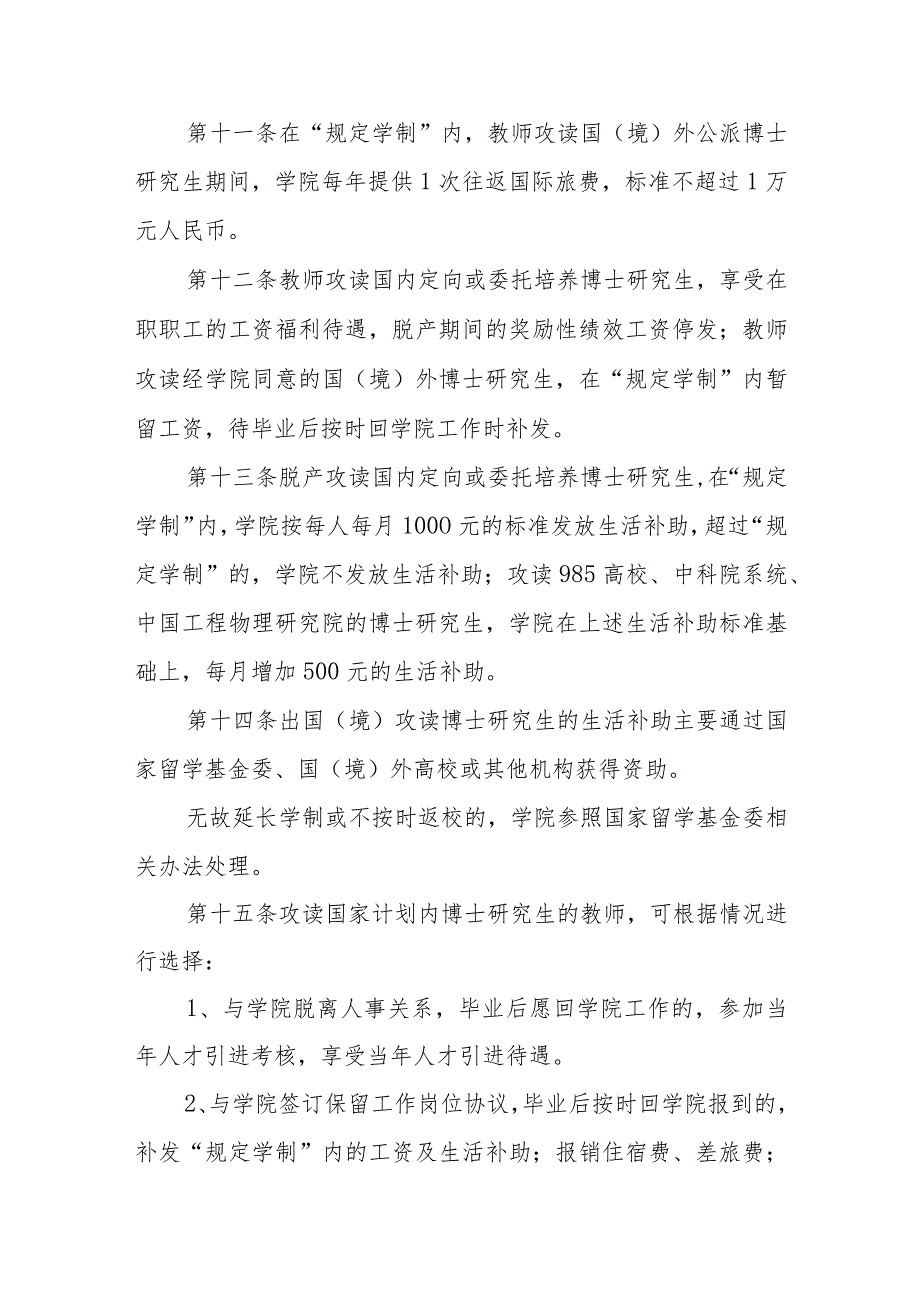 第十一条在“规定学制”内，教师攻读国（境）外公派博士
研究生期间，学院每年提供1次往返国际旅费，标准不超过1万
元人民币。
第十二条教师攻读国内定向或委托培养博士研究生，享受在
职职工的工资福利待遇，脱产期间的奖励性绩效工资停发；教师
攻读经学院同意的国（境）外博士研究生，在“规定学制”内暂
留工资，待毕业后按时回学院工作时补发。
第十三条脱产攻读国内定向或委托培养博士研究生,在“规定
学制”内,学院按每人每月1000元的标准发放生活补助,超过“规
定学制”的，学院不发放生活补助；攻读985高校、中科院系统、
中国工程物理研究院的博士研究生，学院在上述生活补助标准基
础上，每月增加500元的生活补助。
第十四条出国（境）攻读博士研究生的生活补助主要通过国
家留学基金委、国（境）外高校或其他机构获得资助。
无故延长学制或不按时返校的，学院参照国家留学基金委相
关办法处理。
第十五条攻读国家计划内博士研究生的教师，可根据情况进
行选择：
1、与学院脱离人事关系，毕业后愿回学院工作的，参加当
年人才引进考核，享受当年人才引进待遇。
2、与学院签订保留工作岗位协议,毕业后按时回学院报到的，
补发“规定学制”内的工资及生活补助；报销住宿费、差旅费；